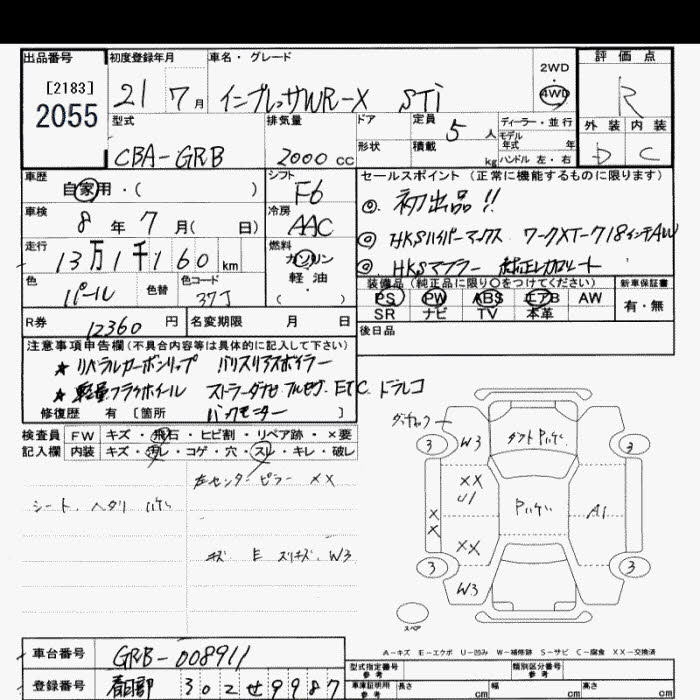 出品番号 初度登録年月 車名・グレード 2WD・4WD 評価点
[2183]
2055 21 7月 インプレッサWR-X STi R
型式 排気量 ドア 定員 5人 ディーラー・並行 外装 内装
モデル年式 年
CBA-GRB 2000cc 形状 積載 kg ハンドル 左・右 D C
車歴 シフト セールスポイント(正常に機能するものに限ります)
自家用・( ) F6 ◎ 初出品!!
車検 冷房
8年 7月( 日) AAC ◎ HKSハイパーマックス ワークXT-7 18インチAW
走行 燃料
13万1千160km ガソリン ◎ HKSマフラー 純正レカロシート
色 色替 色コード 軽油 装備品(純正品に限り○をつけてください) 新車保証書
パール 37J ( ) PS PW ABS エアB AW 有・無
SR ナビ TV 本革
R券 12360円 名変期限 月 日 後日品
注意事項申告欄(不具合内容等は具体的に記入して下さい)
★リベラルカーボンリップ バリスリアスポイラー
★軽量フライホイール ストラーダナビ フルセグ. ETC ドラレコ
修復歴 有[箇所 バックモニター ]
検査員 FW キズ・飛石・ヒビ割・リペア跡・×要
記入欄 内装 キズ・汚レ・コゲ・穴・スレ・キレ・破レ
左センターピラー XX
シート ヘタリ
キズ E スリキズ W3
3 W3 3
XX
U1 A1
XX
XX
3 W3 3
スペア
A-キズ E-エクボ U-凹み W-補修跡 S-サビ C-腐食 XX-交換済
車台番号 GRB-008911 型式指定番号 参考 類別区分番号 参考
登録番号 春日部 302 せ 9987 車庫証明用 参考 長さ cm 幅 cm 高さ cm